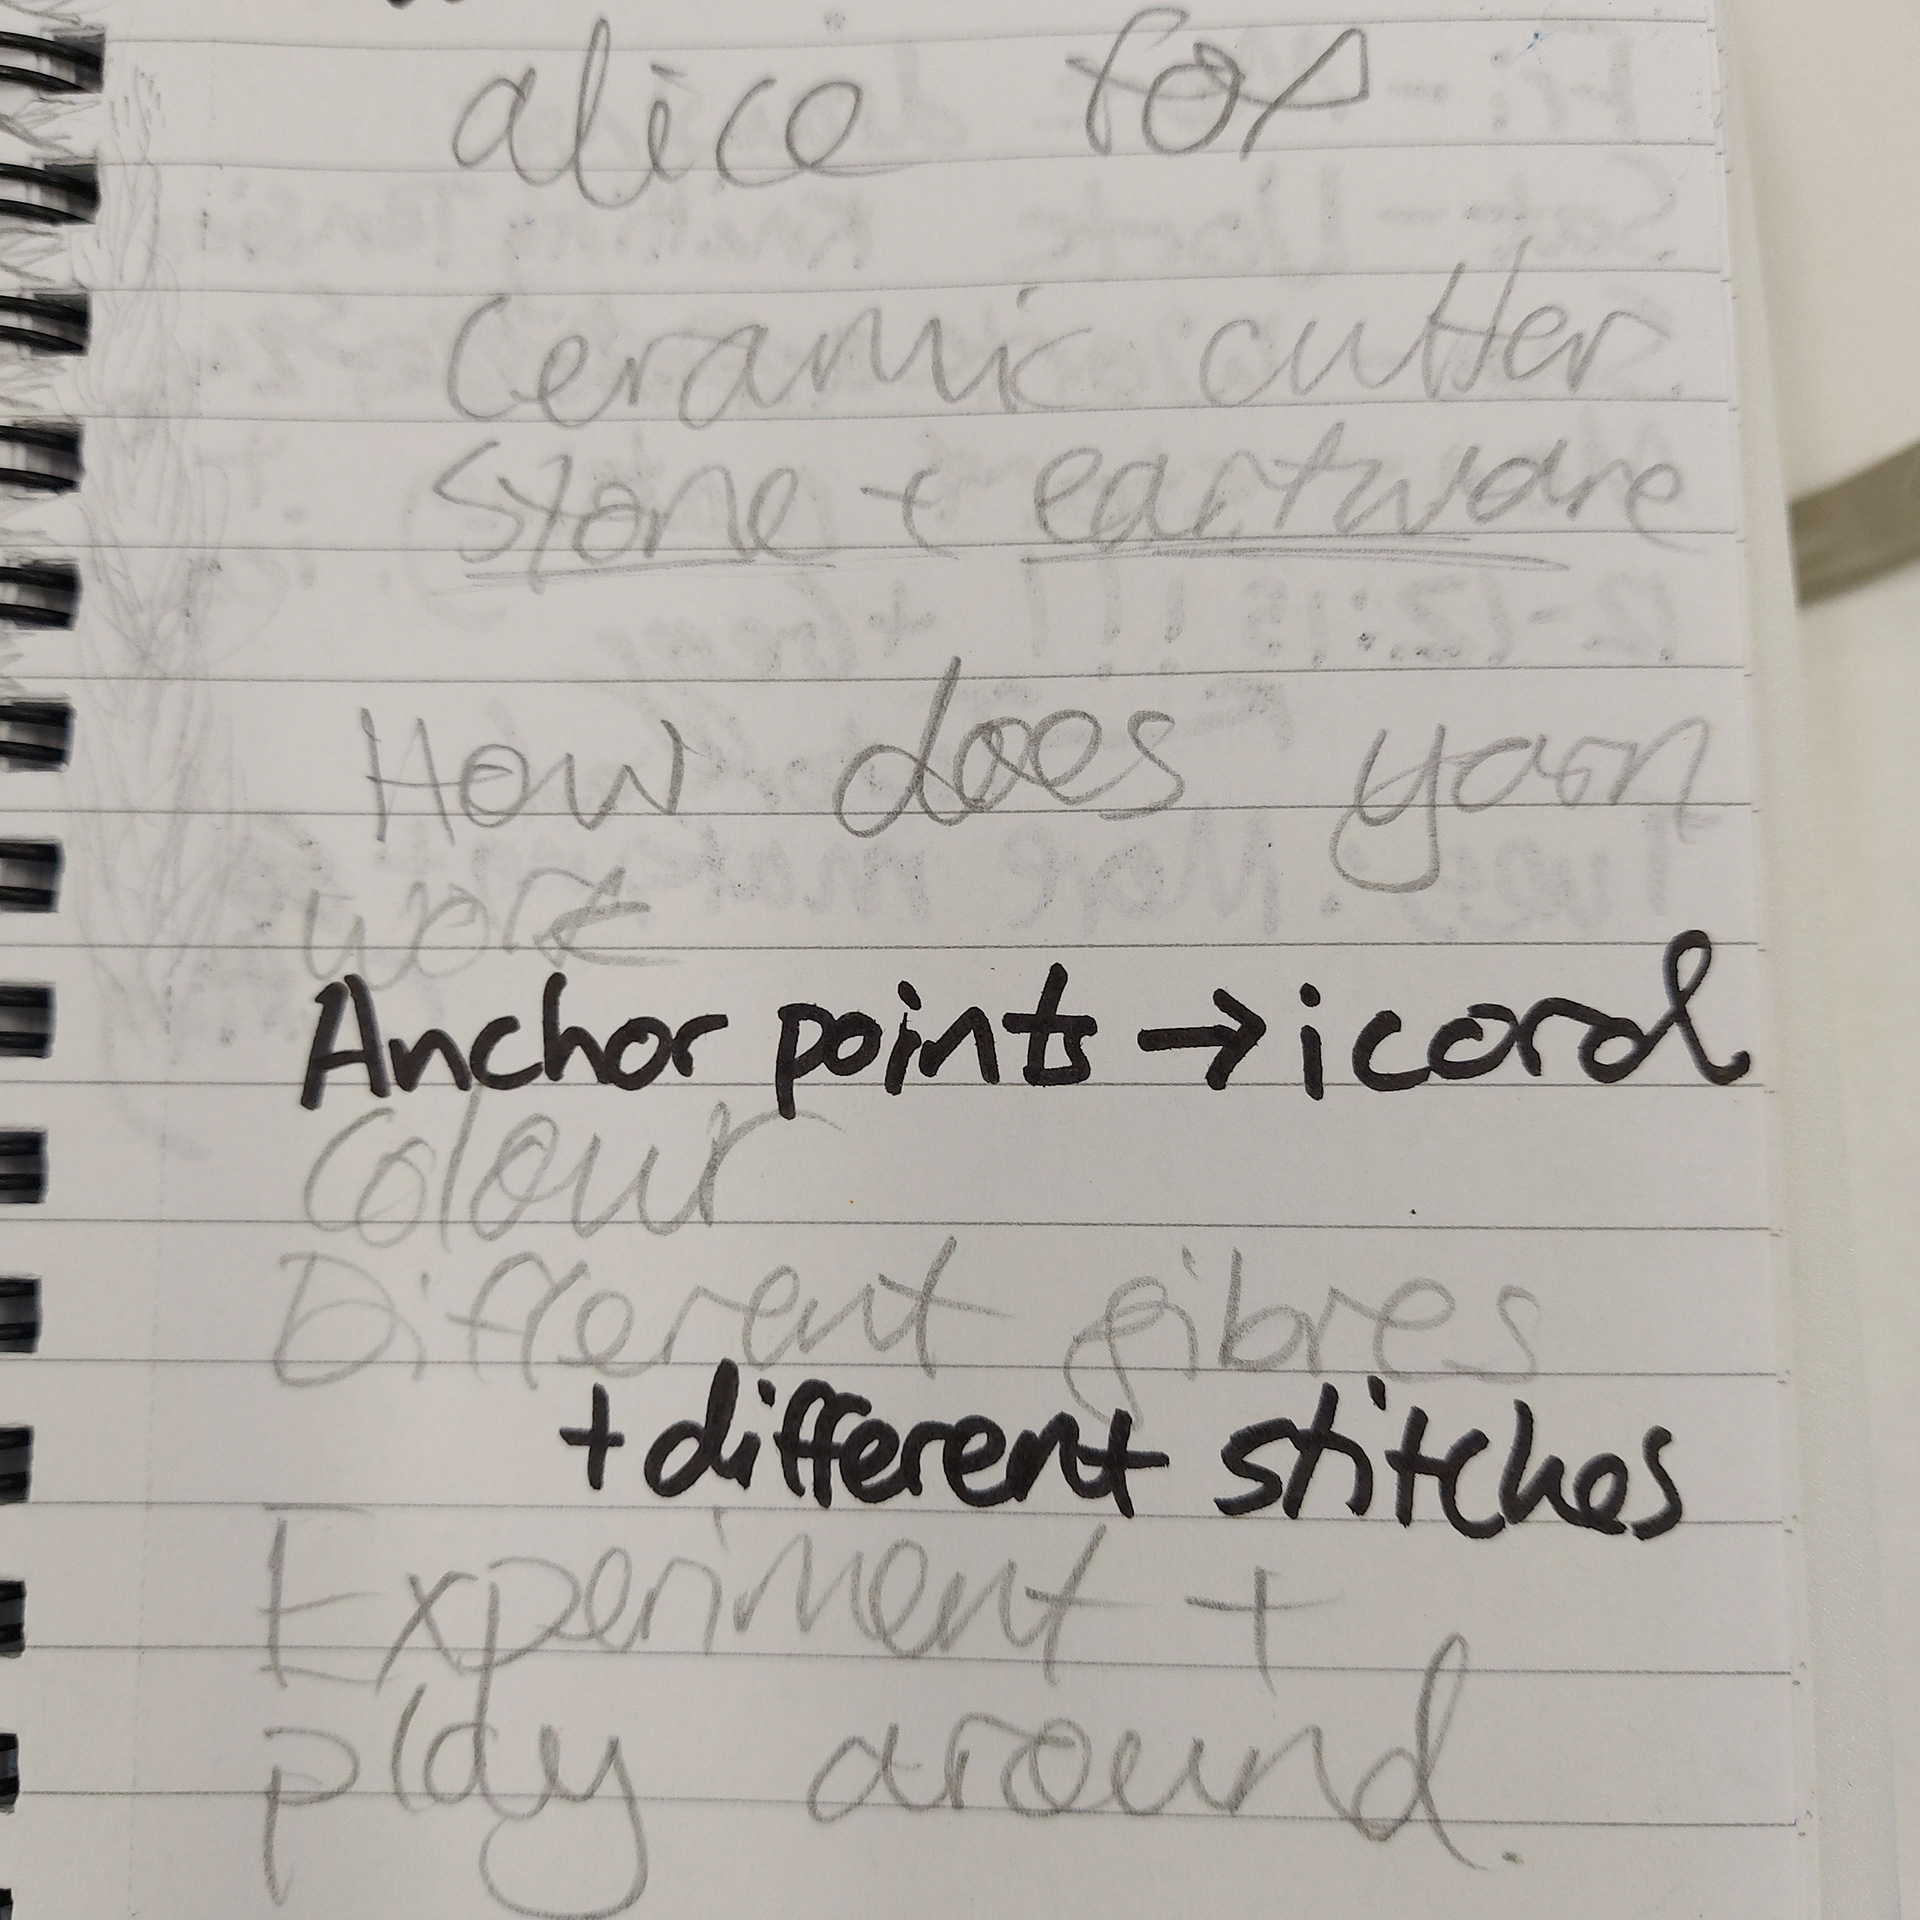 alice fox
Ceramic cutter
Stone + eartware
How does yarn
work
Anchor points → icord
Colour
Different fibres
+ different stitches
Experiment +
play around.